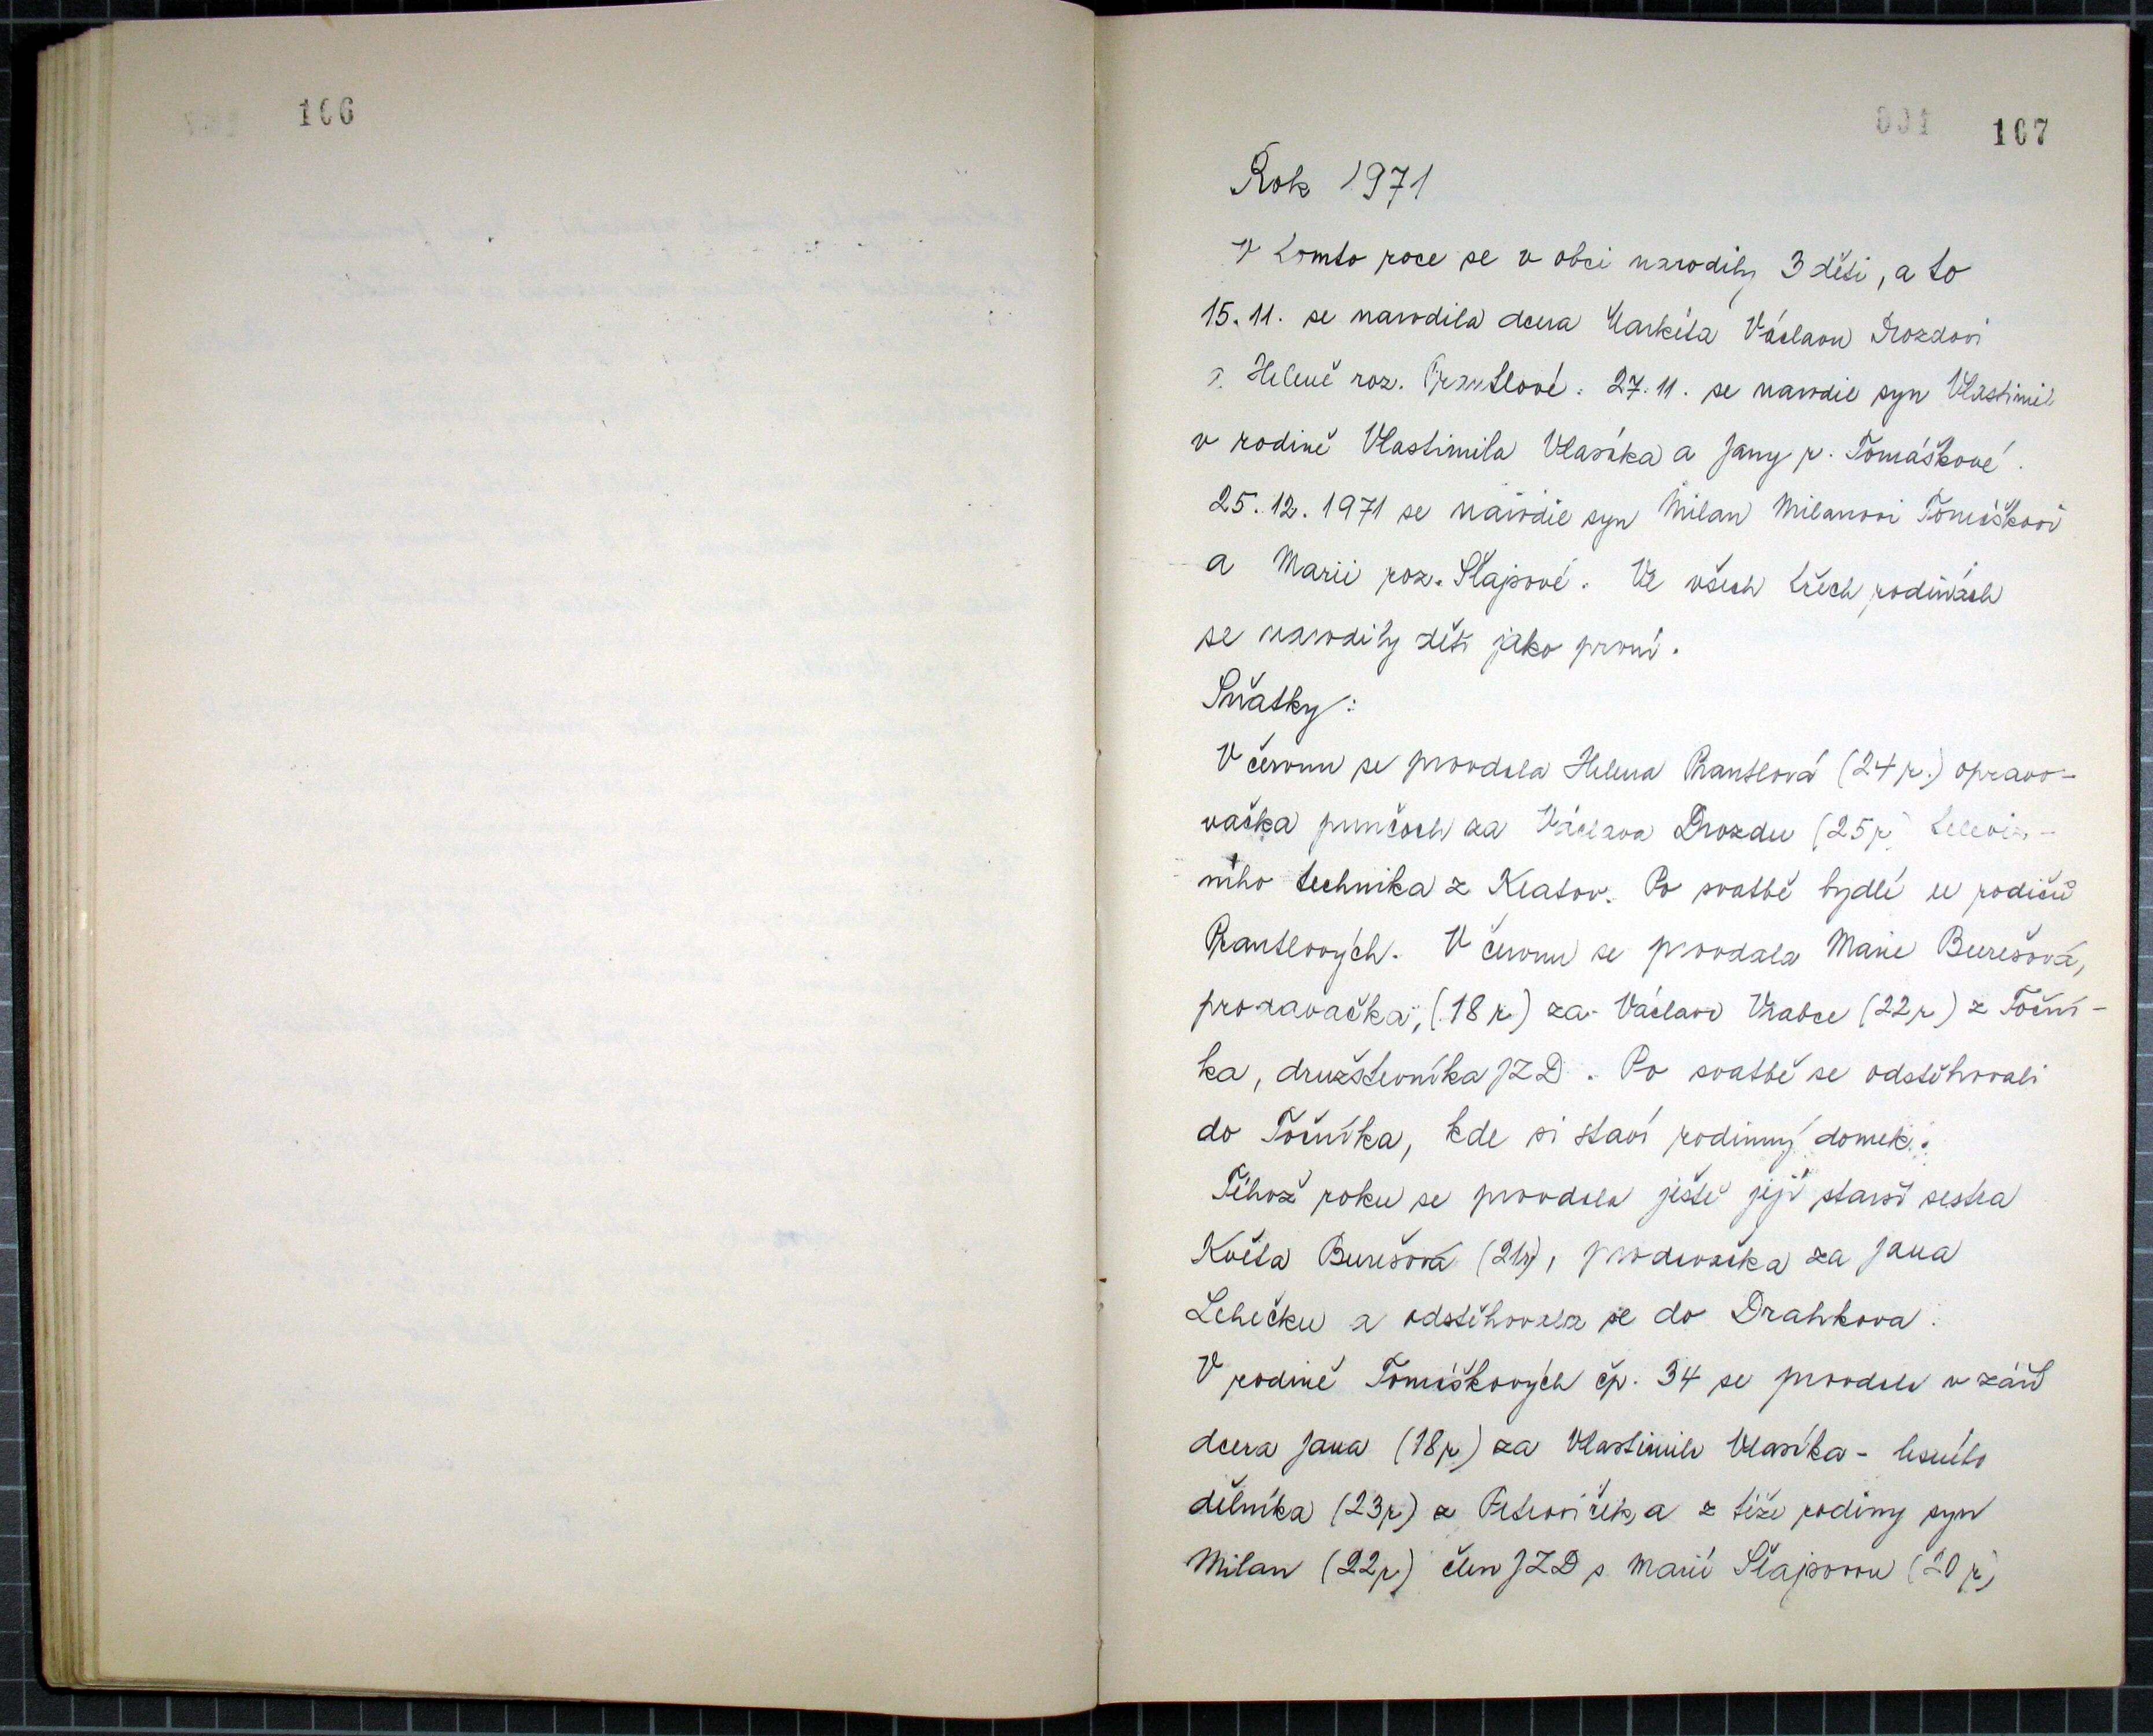 106
107
Rok 1971
V tomto roce se v obci narodily 3 děti, a to
15. 11. se narodila dcera Markéta Václavu Drozdovi
a Heleně roz. Prantlové. 27. 11. se narodil syn Vlastimil
v rodině Vlastimila Vlasáka a Jany r. Tomáškové.
25. 12. 1971 se narodil syn Milan Milanovi Tomáškovi
a Marii roz. Šlajsové. Ve všech třech rodinách
se narodily děti jako první.
Sňatky:
V červnu se provdala Helena Prantlová (24 r.) opravo-
vačka punčoch za Václava Drozdu (25 r) televiz-
ního technika z Klatov. Po svatbě bydlí u rodičů
Prantlových. V červnu se provdala Marie Burešová,
prodavačka, (18 r) za Václava Vrabce (22 r) z Toční-
ka, družstevníka JZD. Po svatbě se odstěhovali
do Točníka, kde si staví rodinný domek.
Téhož roku se provdala ještě její starší sestra
Květa Burešová (21r), prodavačka za Jana
Lehečku a odstěhovala se do Drahkova.
V rodině Tomáškových čp. 34 se provdala v září
dcera Jana (18 r) za Vlastimila Vlasáka - lesního
dělníka (23 r) z Petroviček, a z téže rodiny syn
Milan (22 r) člen JZD s Marií Šlajsovou (20 r)